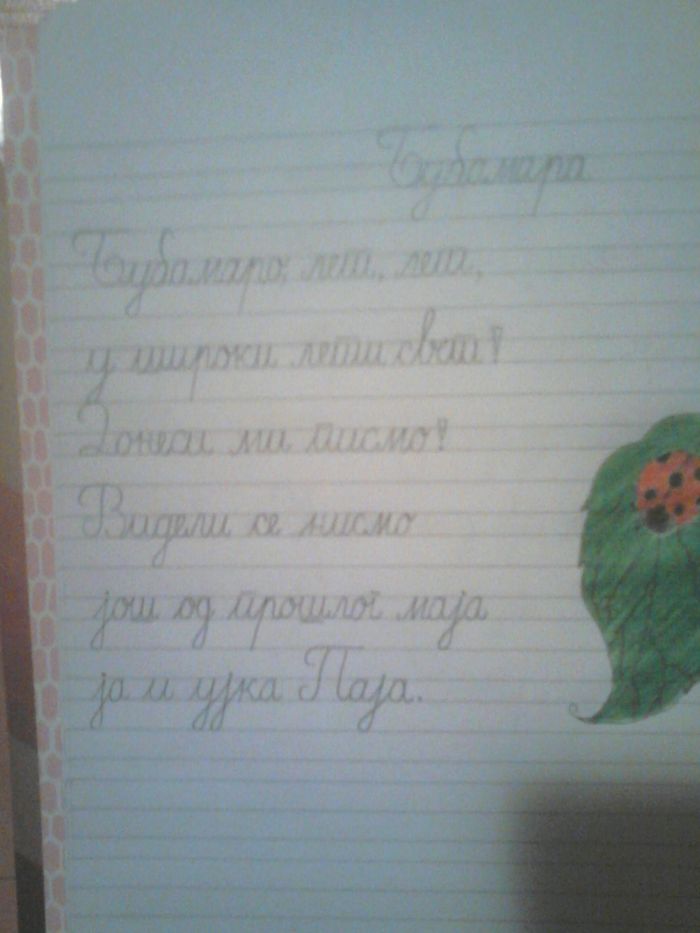 Бубамара
Бубамаро, лет, лет,
у широки лети свет!
Донеси ми писмо!
Видели се нисмо
још од прошлог маја
ја и ујка Паја.